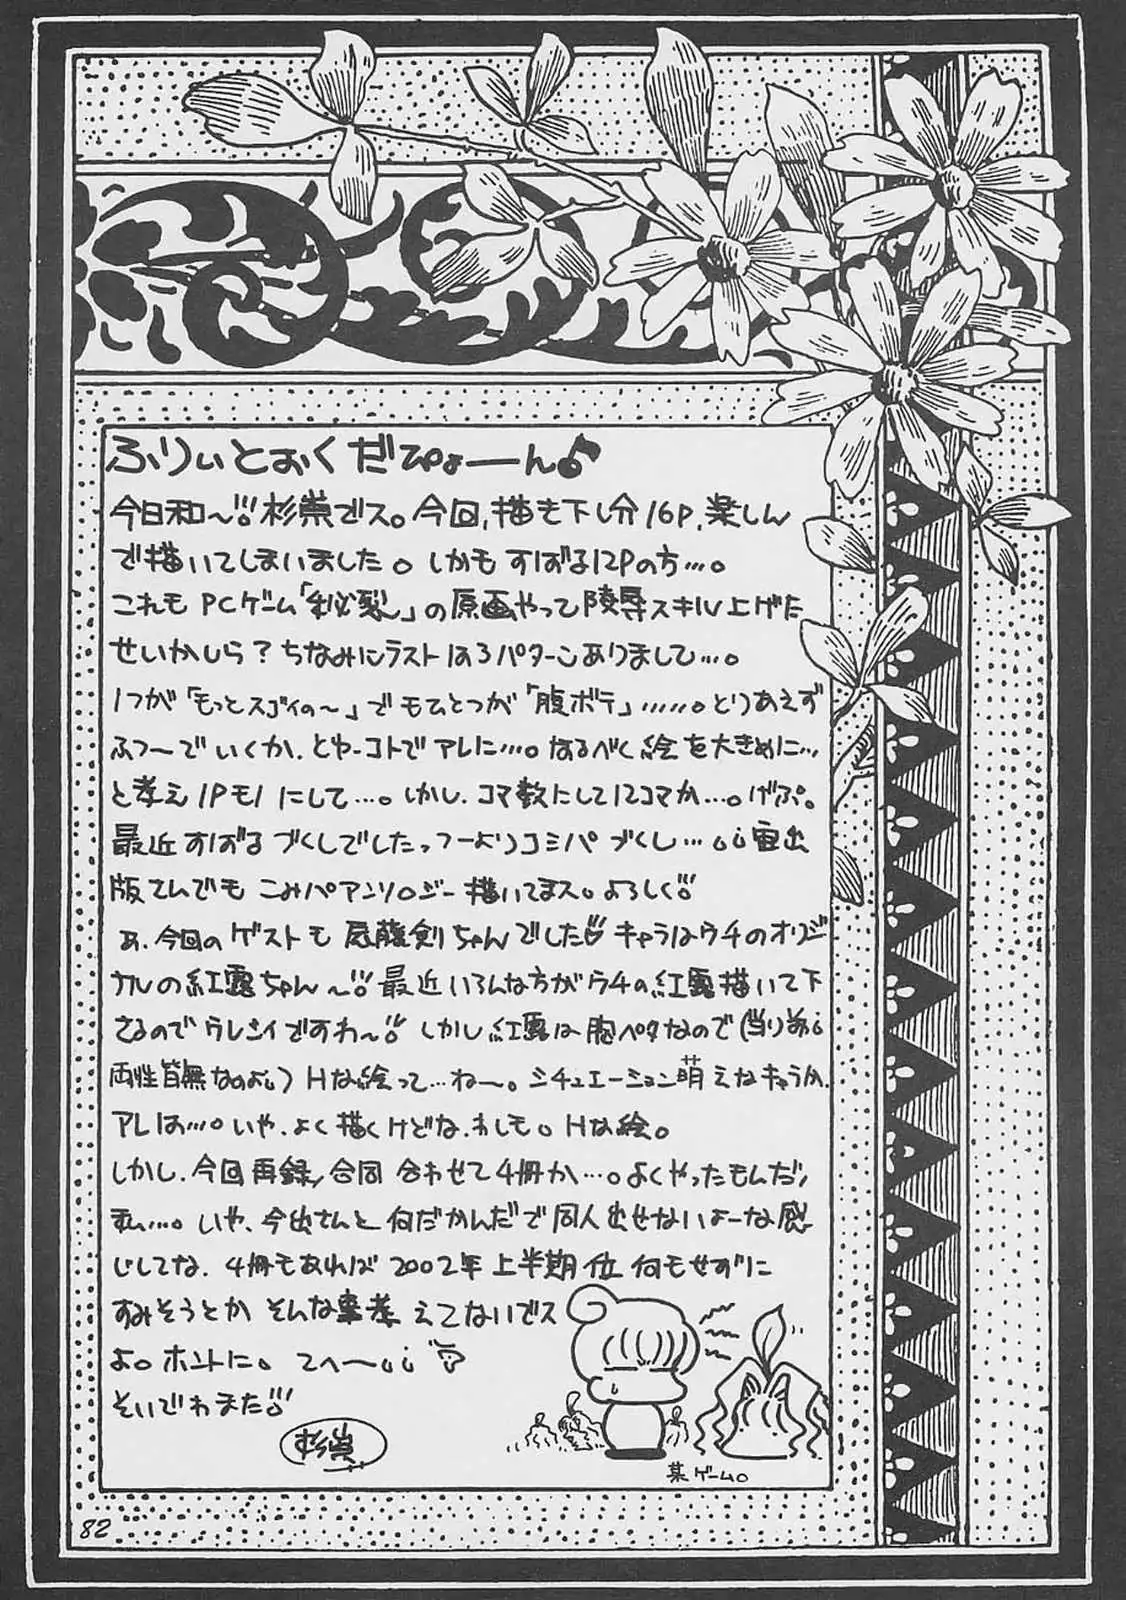 ふりぃとおくだぴょーん♪
今日和〜!!杉崇でス。今回,描き下し分16P,楽しん
で描いてしまいました。しかも すばる12Pの方…。
これも PCゲーム「 」の原画やって陵辱スキル上げた
せいかしら?ちなみにラストは3パターンありまして…。
1つが「もっとスゴイの〜」でもひとつが「腹ボテ」……。とりあえず
ふつ〜でいくか、とゆーコトでアレに…。なるべく絵を大きめに…
と考え 1Pモ1 にして…。しかし、コマ数にして12コマか…。げぷ。
最近すばるづくしでしたっつーよりコミパづくし…。¡¡宙出
版さんでも こみパアンソロジー描いてまス。よろしく!!
あ、今回のゲストも 尾藤剣ちゃんでした キャラはウチのオリジ
ナルの紅露ちゃん〜!!最近いろんな方がウチの紅露描いて下
さるのでウレシイですわ〜!! しかし紅露は胸ペタなので(当り前¡
両性皆無なのよ¡)Hな絵って…ね〜。シチュエーション萌えなキャラか、
アレは…。いや、よく描くけどな、わしも。Hな絵。
しかし、今回再録/合同 合わせて4冊か…。よくやったもんだ/
私…。いや、今出さんと何だかんだで同人出せないよーな感
じしてな、4冊もあれば2002年上半期位何もせずに
すみそうとか そんな事考えてないでス
よ。ホントに。てへ〜¡¡
そいでわまた!!
杉崇
某ゲーム。
82